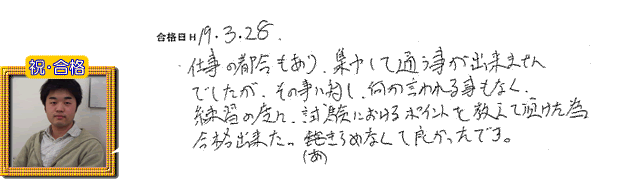 合格日 H 19.3.28.
祝・合格
仕事の都合もあり、集中して通う事が出来ません
でしたが、その事に対し、何か言われる事もなく、
練習の度に、試験におけるポイントを教えて頂けた為
合格出来た。きらめなくて良かったです。
(あ)